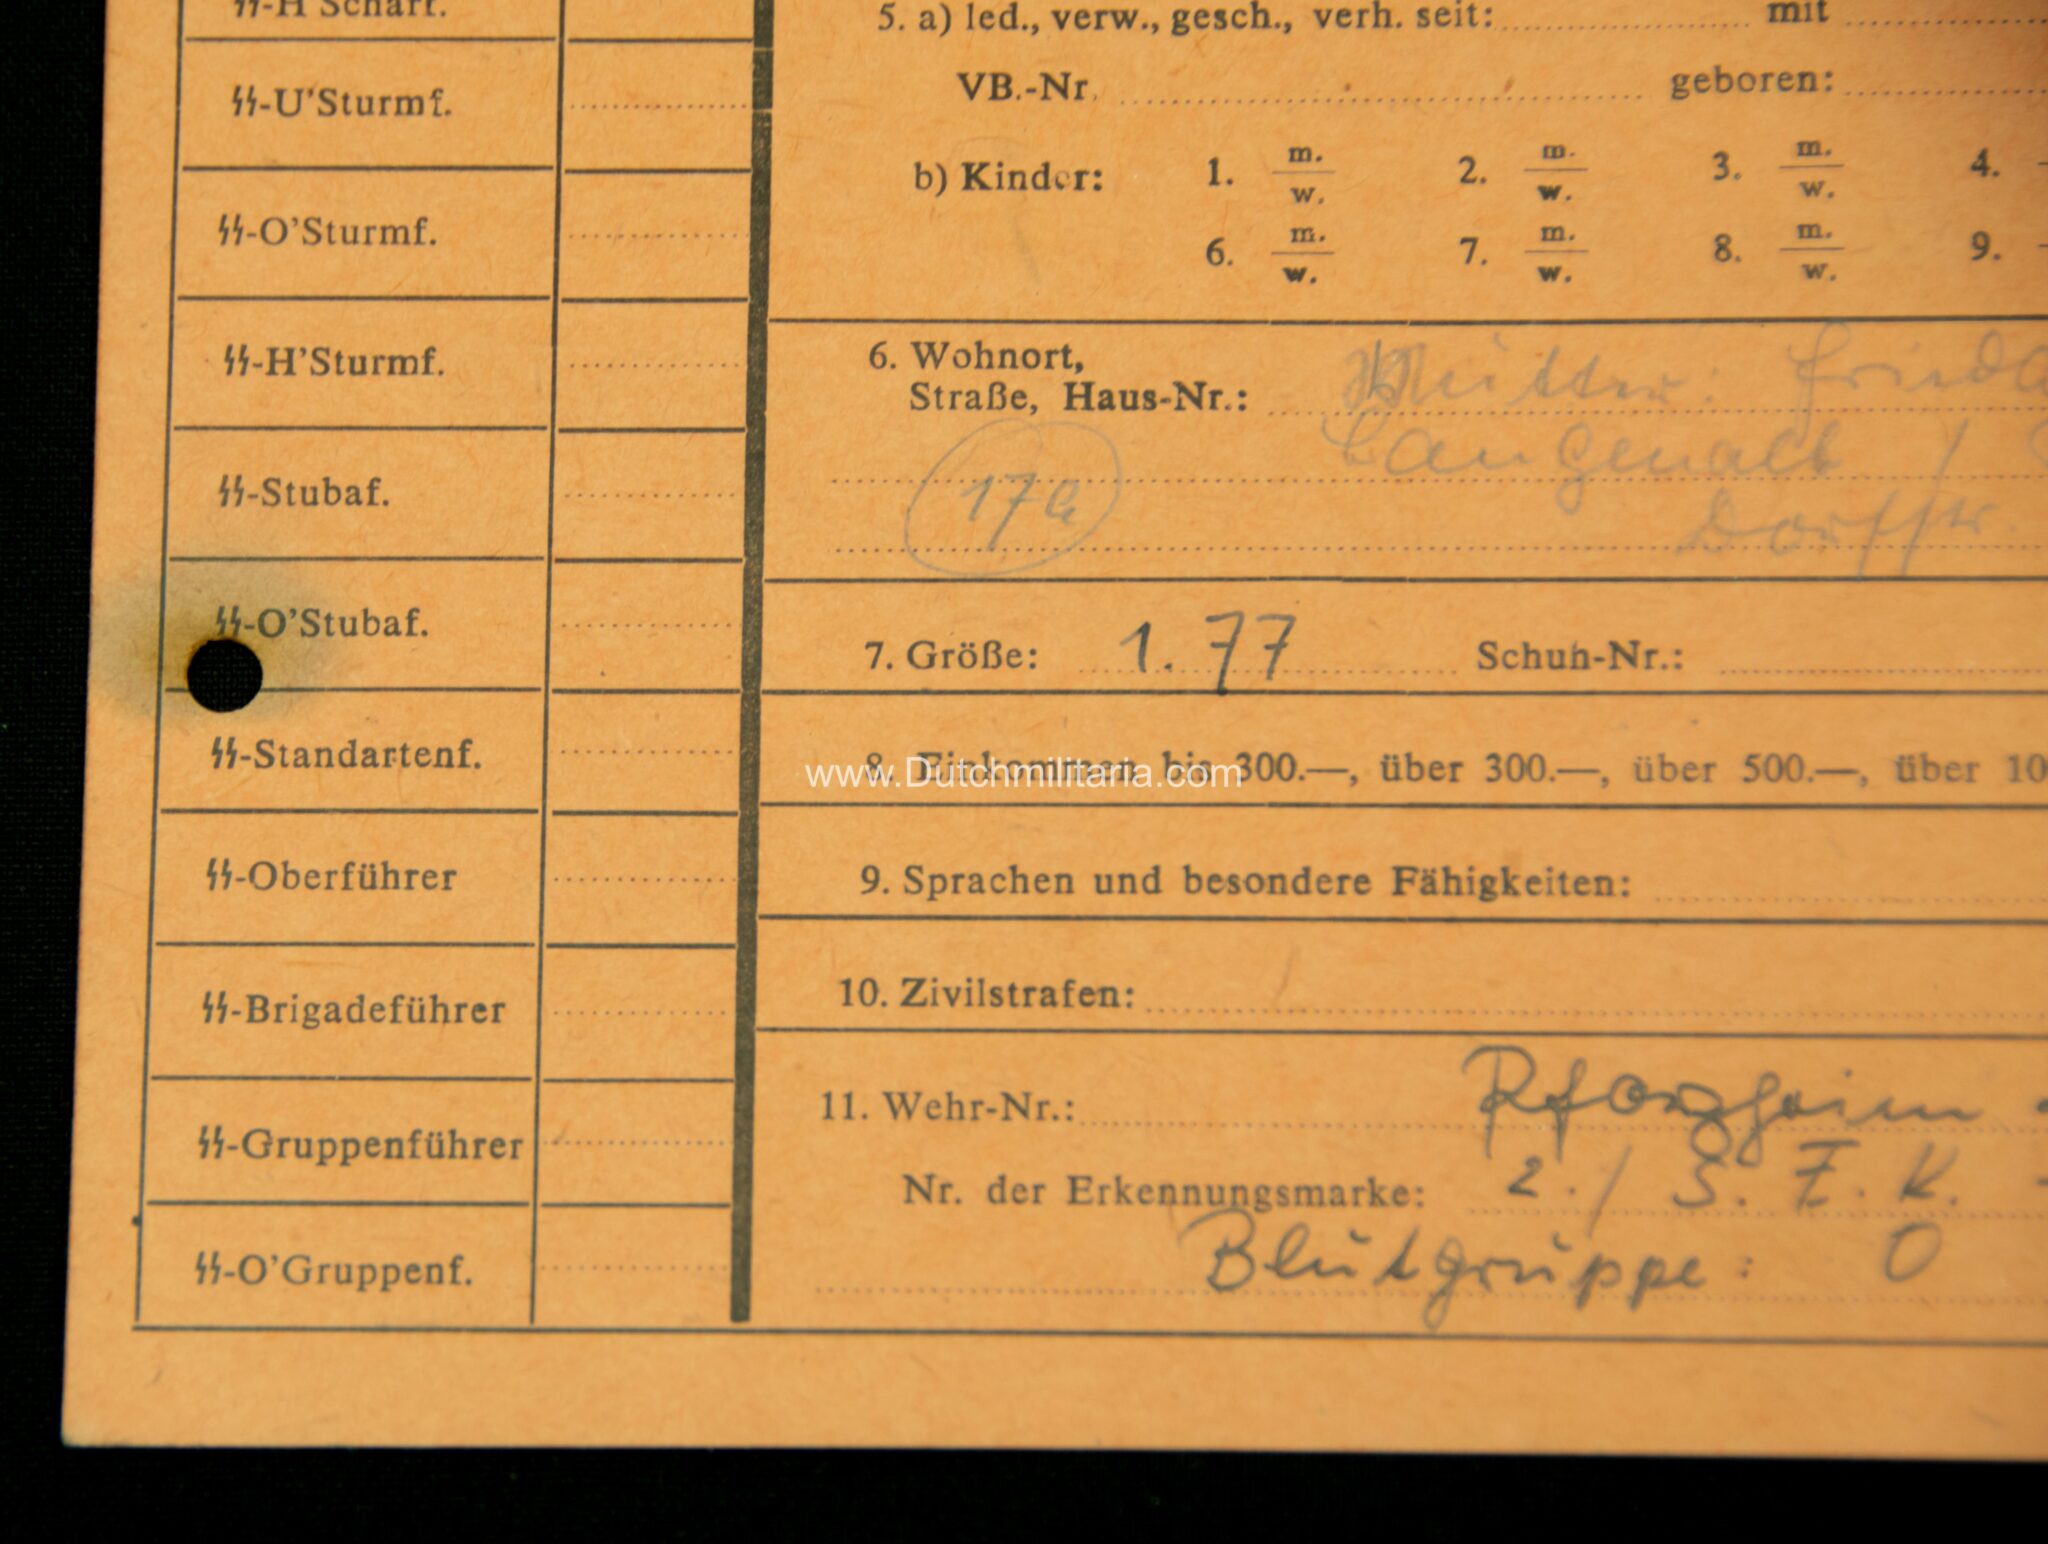 ᛋᛋ-H'Scharf.
ᛋᛋ-U'Sturmf.
ᛋᛋ-O'Sturmf.
ᛋᛋ-H'Sturmf.
ᛋᛋ-Stubaf.
ᛋᛋ-O'Stubaf.
ᛋᛋ-Standartenf.
ᛋᛋ-Oberführer
ᛋᛋ-Brigadeführer
ᛋᛋ-Gruppenführer
ᛋᛋ-O'Gruppenf.
5. a) led., verw., gesch., verh. seit: mit
VB.-Nr. geboren:
b) Kinder: 1. m. w. 2. m. w. 3. m. w. 4.
6. m. w. 7. m. w. 8. m. w. 9.
6. Wohnort,
Straße, Haus-Nr.: Mutter:
17a Langenalb /
Dorfstr.
7. Größe: 1.77 Schuh-Nr.:
8. Einkommen bis 300.—, über 300.—, über 500.—, über 10
www.Dutchmilitaria.com
9. Sprachen und besondere Fähigkeiten:
10. Zivilstrafen:
11. Wehr-Nr.: Pforzheim
Nr. der Erkennungsmarke: 2./ S. F. K. -
Blutgruppe: O